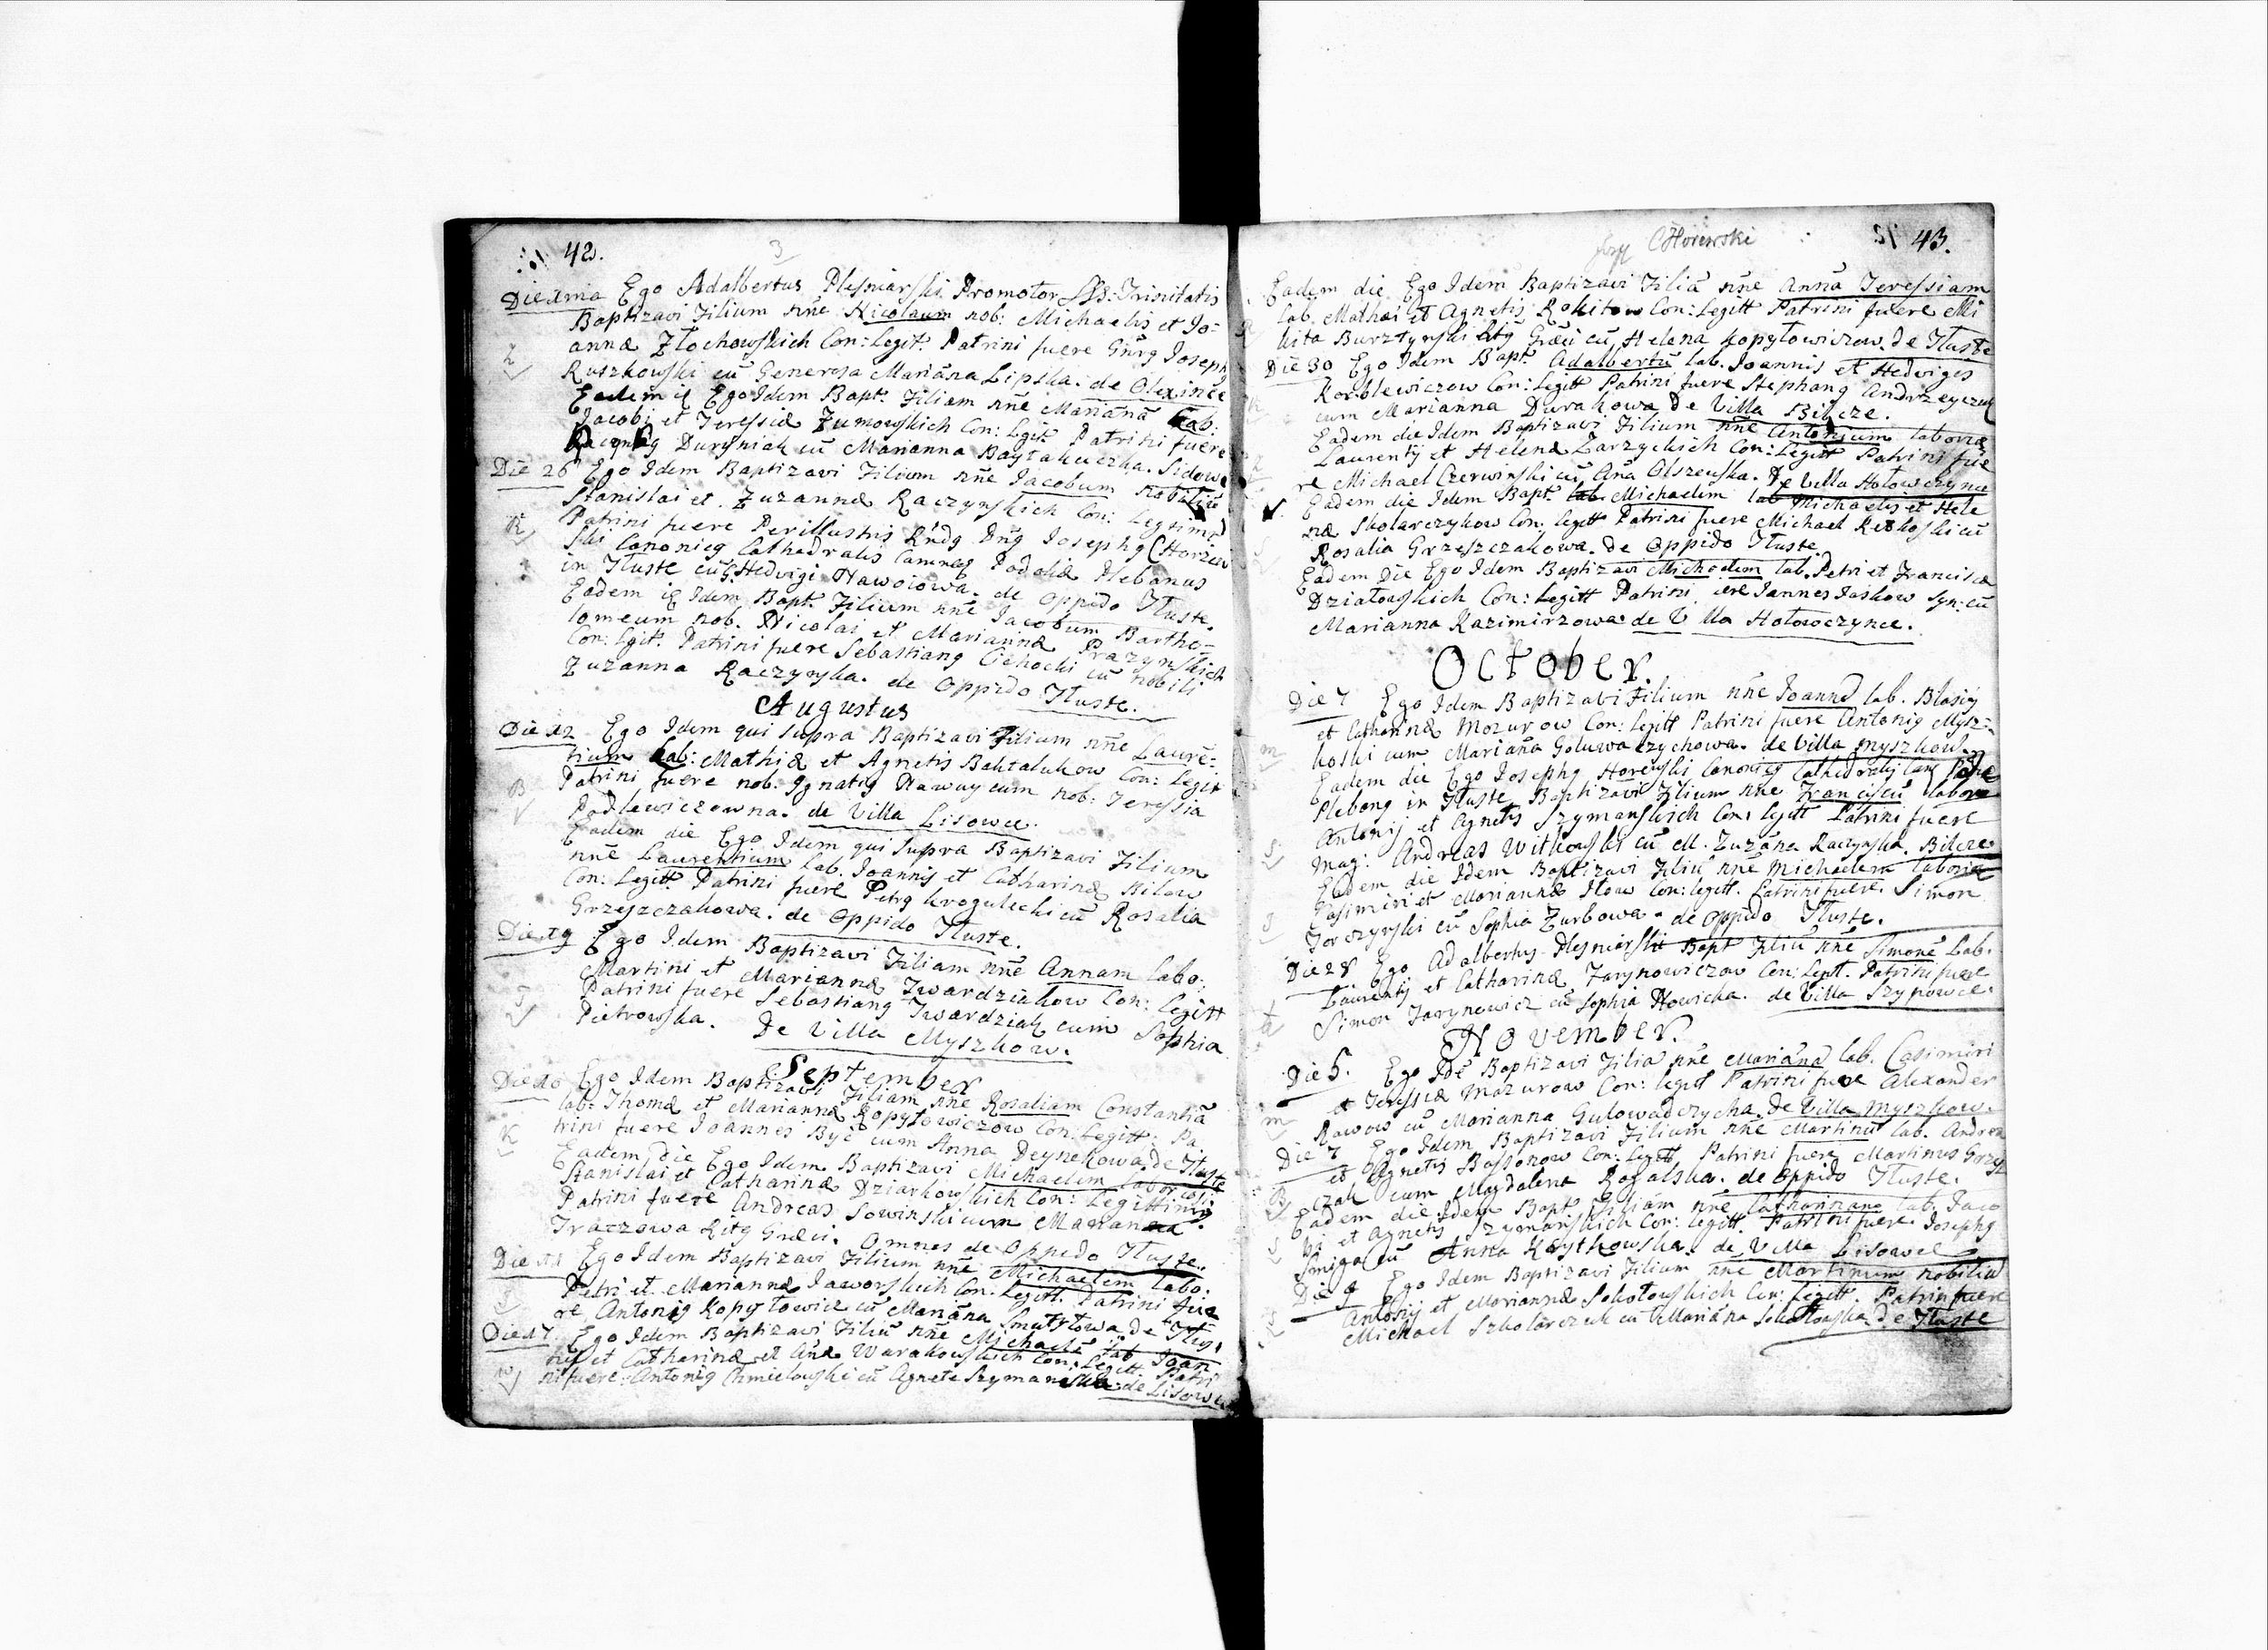 42.
3
Die 1ma Ego Adalbertus Plesniarski Promotor SSS: Trinitatis
Baptizavi Filium nñe Nicolaum nob: Michaelis et Jo=
annæ Złochowskich Con: Legit: Patrini fuere Joseph
Ruszkowski cū Generosa Mariāna Lipska. de Olexince
Eadem Ego Idem Bapt. Filiam nñe Mariānā Lab:
Jacobi et Teressiæ Zumowskich Con: Legit: Patrini fuere
Duryniak cū Marianna
Die 26 Ego Idem Baptizavi Filium nñe Jacobum nobiliū
Stanislai et Zuzannæ Raczynskich Con: Legtimor
Patrini fuere Perillustris Josephg CHorew
ski Canonicg Cathedralis Podoliæ Plebanus
in Tłuste cū Hedvigi Nawoiowa. de Oppido Tłuste.
Eadem Idem Bapt. Filium nñe Jacobum Bartho=
lomeum nob. Nicolai et Mariannæ Prazynskich
Con: Lgit: Patrini fuere Sebastiang Cichocki cū nobili
Zuzanna Raczynska. de Oppido Tłuste.
Augustus
Die 12 Ego Idem qui supra Baptizavi Filium nñe Laurē=
tium Lab: Mathiæ et Agnetis Baktalukow Con: Legit
Patrini fuere nob: Ignatig Naway cum nob: Teressia
Podlewiczowna. de Villa Lisowce.
Eadem die Ego Idem qui supra Baptizavi Filium
nñe Laurentium Lab. Joannis et Catharinæ Kilow
Con: Legitt: Patrini fuere Petrg Krogulecki cū Rosalia
Grzeszczakowa. de Oppido Tłuste.
Die 19 Ego Idem Baptizavi Filiam nñe Annam labo:
Martini et Mariannæ Twardziakow Con: Legitt
Patrini fuere Sebastiang Twardziak cum Sophia
Pietrowska. De Villa Myszkow.
September
Die 10 Ego Idem Baptizavi Filiam nñe Rosaliam Constantiā
lab: Thomæ et Mariannæ Kopytowiczow Con: Legitt: Pa
trini fuere Joannes Być cum Anna Deynekowa de Tłuste
Eadem die Ego Idem Baptizavi Michaelem
Stanislai et Catharinæ Dziarkowskich Con: Legittimg
Patrini fuere Andreas Sowinski cum Marianna
Traczowa Ritg Græci. Omnes de Oppido Tłuste.
Die 11 Ego Idem Baptizavi Filium nñe Michaelem labo:
Petri et Mariannæ Jaworskich Con: Legitt. Patrini fue
re Antonig Kopytowicz cū Mariāna de Tłus:
Die 17 Ego Idem Baptizavi Filiū nñe Michaelē lab Joan
nis et Catharinæ et Anæ Warakowskich Con: Legitt: Patri
ni fuere: Antonig Chmielowski cū Agnete Szymanska: de Lisow
CHorewski
43.
Eadem die Ego Idem Baptizavi Filiā nñe Annā Teressiam
lab. Mathæi et Agnetis Rokitow Con: Legitt Patrini fuere Mi
kita Burztynski Ritg Græci cū Helena Kopytowiczow. de Tłuste
Die 30 Ego Idem Bapt. Adalbertū lab. Joannis et Hedviges
Con: Legitt Patrini fuere Stephang Andrzeyczuk
cum Marianna Durakowa de Villa Bilcze.
Eadem die Idem Baptizavi Filium nñe Antonium laboriæ
Laurentij et Helenæ Zarzyckich Con: Legitt Patrini fue
re Michael Czerwinski cū Aña Olszewska. De Villa Hołowczynce
Eadem die Idem Bapt. Michaelem lab Michaelis et Hele
næ Skolarczykow Con: Legitt Patrini fuere Michael cū
Rosalia Grzeszczakowa. de Oppido Tłuste.
Eadem Die Ego Idem Baptizavi Michaelem lab. Petri et Franciscæ
Działowskich Con: Legitt Patrini Jannes Jaskow cū
Marianna Kazimirzowa. de Villa Hołowczynce.
October.
Die 7 Ego Idem Baptizavi Filium nñe Joannē lab. Blasij
et Catharinæ Mozurow Con: Legitt Patrini fuere Antonig Mysz=
koski cum Mariāna de Villa Myszkow.
Eadem die Ego Josephg Horewski Canonicg Cathedralis Cam
Plebang in Tłuste Baptizavi Filium nñe Franciscū
Antonij et Agnetis Szymanskich Con: Legitt Patrini fuere
Mag: Andreas Witkowski cū M. Zuzāna Raczynska. Bilcze
Eadem die Idem Baptizavi Filiū nñe Michaelem laboriæ
Casimiri et Mariannæ Con: Legitt. Patrini fuere. Simon
cū Sophia Zurbowa. de Oppido Tłuste.
Die 28 Ego Adalbertus Plesniarski Bapt Filiū nñe Simonē Lab.
Laurentij et Catharinæ Tarynowiczow Con: Legt. Patrini fuere
Simon Tarynowicz cū Sophia Nowicka. de Villa Szypowce.
November.
Die 5. Ego Idē Baptizavi Filiā nñe Mariānā lab. Casimiri
et Teressiæ Mozurow Con: Legitt Patrini fuere Alexander
cū Marianna de Villa Myszkow.
Die 7 Ego Idem Baptizavi Filium nñe Martinū lab. Andreæ
et Agnetis Con: Legitt Patrini fuere Martinus Grzesz
czak cum Magdalena Rogalska. de Oppido Tłuste.
Eadem die Idem Bapt. Filiam nñe Catharinam lab. Jaco
bi et Agnetis Szymanskich Con: Legitt. Patrini fuere. Josephg
Smiga cū Anna de Villa Lisowce
Die 9 Ego Idem Baptizavi Filium nñe Martinum nobiliū
Antonij et Mariannæ Sokołowskich Con: Legitt. Patrini fuere
Michael Szkolarczuk cū Mariāna Sokołowska de Tłuste